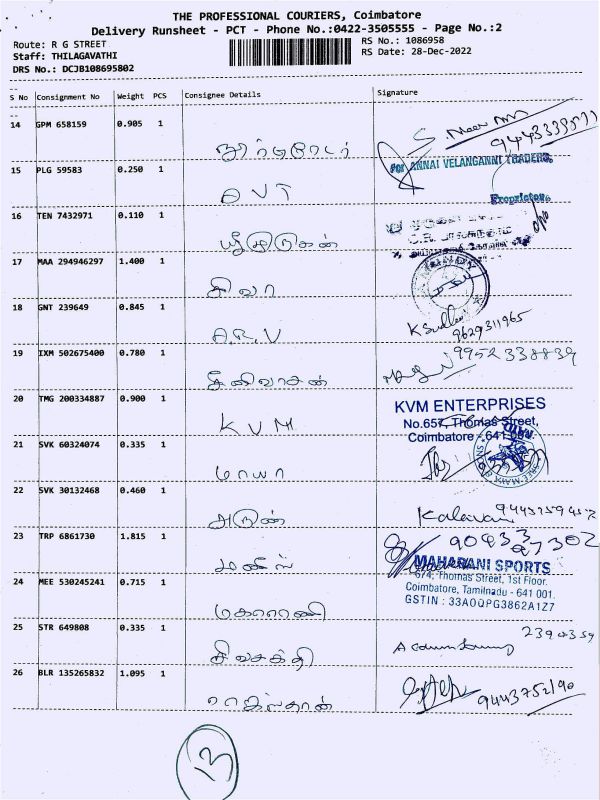 THE PROFESSIONAL COURIERS, Coimbatore
Delivery Runsheet - PCT - Phone No.:0422-3505555 - Page No.:2
Route: R G STREET
RS No.: 1086958
Staff: THILAGAVATHI
RS Date: 28-Dec-2022
DRS No.: DCJB108695802
S No Consignment No Weight PCS Consignee Details Signature
14 GPM 658159 0.905 1
For ANNAI VELANGANNI TRADERS,
15 PLG 59583 0.250 1
Proprietor
AVT
16 TEN 7432971 0.110 1
17 MAA 294946297 1.400 1
சிவா
18 GNT 239649 0.845 1
A.R.V
9629311965
19 IXM 502675400 0.780 1
9952338839
சீனிவாசன்
20 TMG 200334887 0.900 1
KVM ENTERPRISES
No.657, Thomas Street,
KVM
Coimbatore - 641 001.
21 SVK 60324074 0.335 1
மாயா
22 SVK 30132468 0.460 1
Kalavani
அருண்
23 TRP 6861730 1.815 1
MAHARANI SPORTS
674, Thomas Street, 1st Floor.
24 MEE 530245241 0.715 1
Coimbatore, Tamilnadu - 641 001.
GSTIN : 33AOQPG3862A1Z7
மகாராணி
25 STR 649808 0.335 1
சிவசக்தி
26 BLR 135265832 1.095 1
9443752190
ராஜஸ்தான்
13